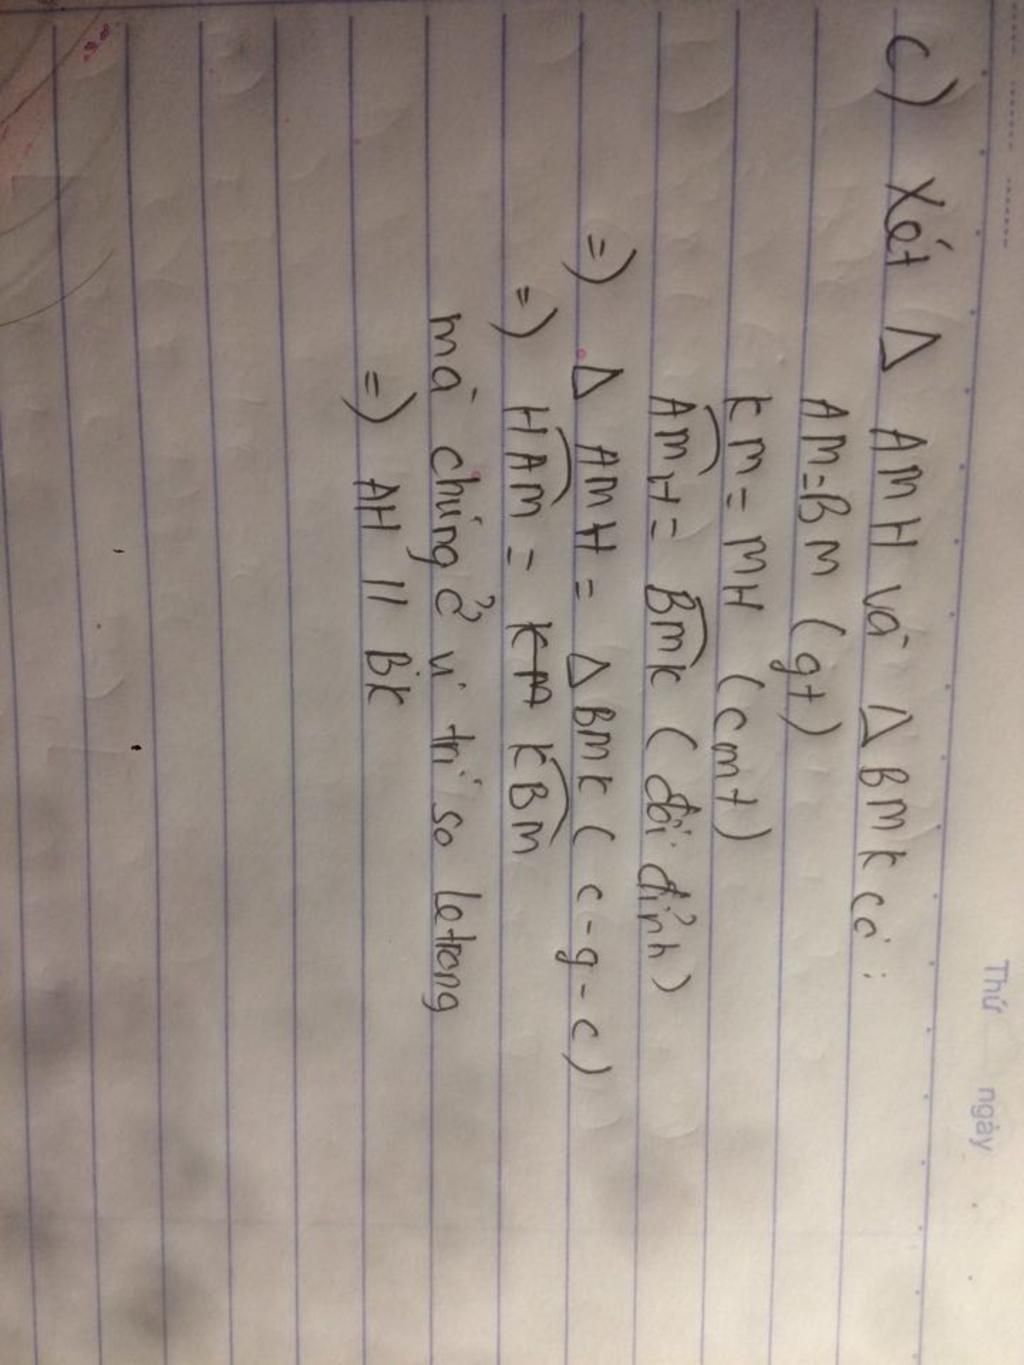 Thứ ngày
c) Xét Δ AMH và Δ BMK có:
AM=BM (gt)
KM = MH (cmt)
AMH = BMK (đối đỉnh)
=) Δ AMH = Δ BMK ( c-g-c)
=) HAM = KM KBM
mà chúng ở vị trí so le trong
=) AH // BK